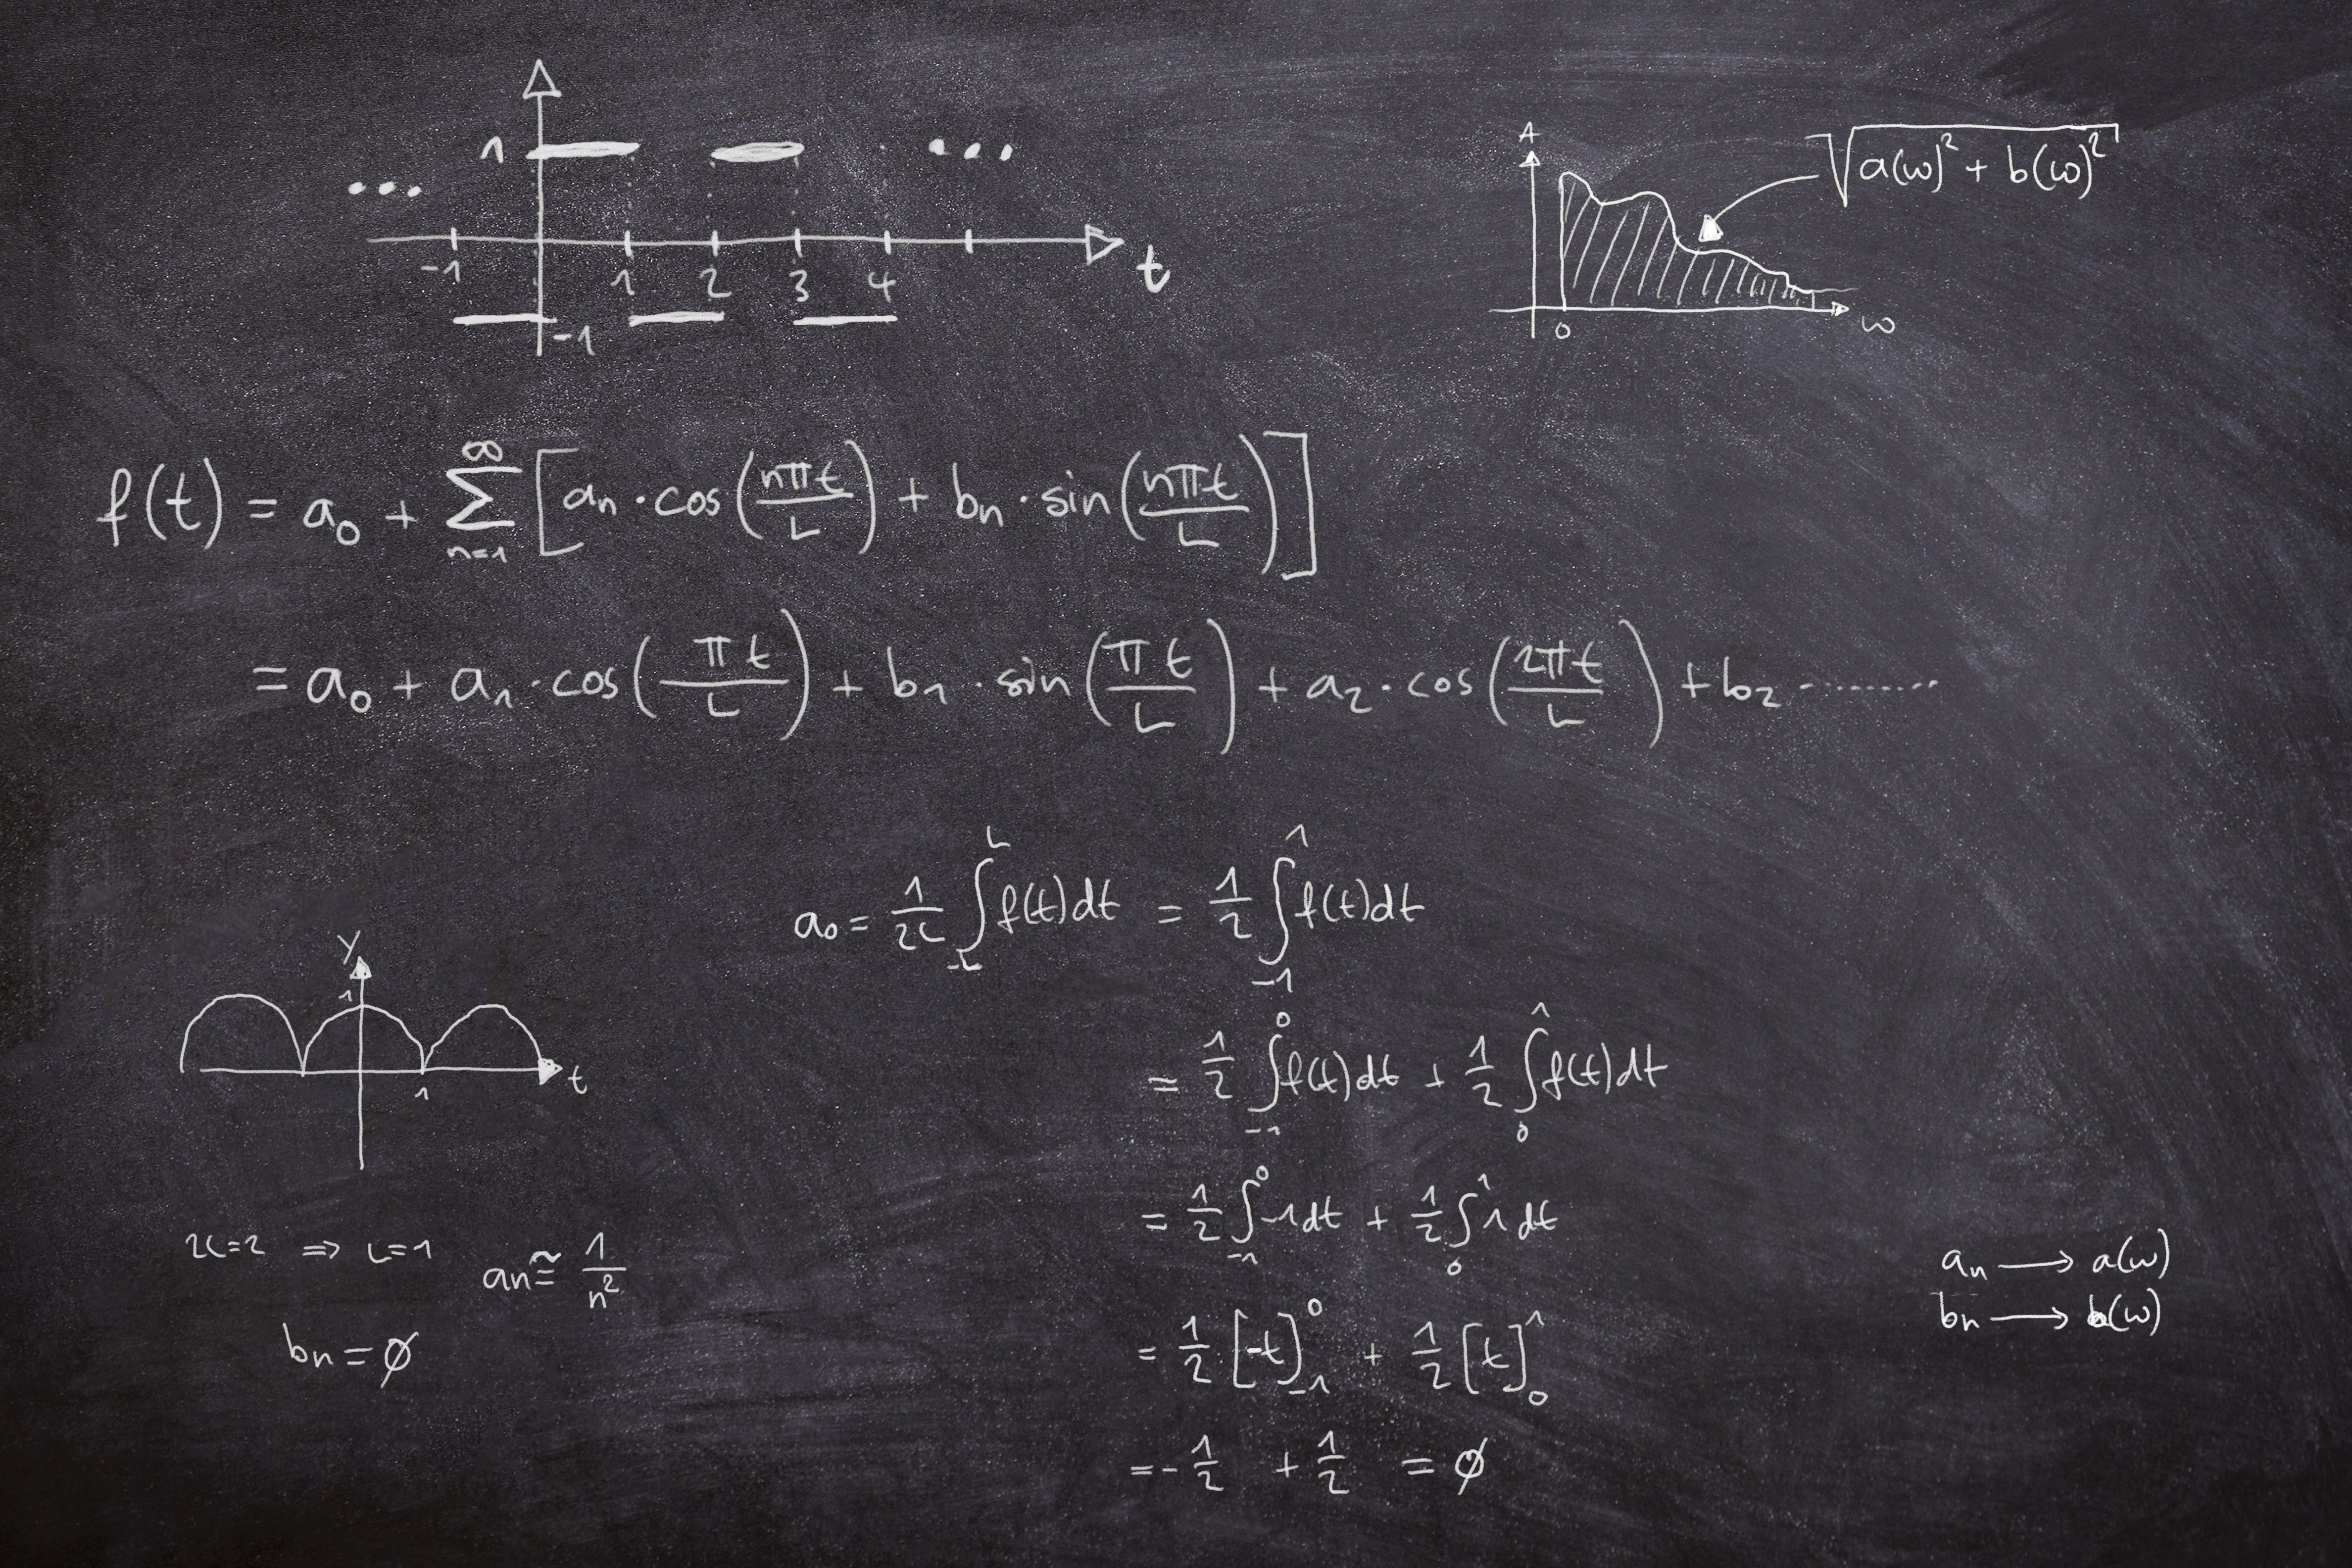 1
...
...
-1 1 2 3 4 t
-1
A
√(a(ω)² + b(ω)²)
0 ω
f(t) = a₀ + ∑ₙ₌₁^∞ [aₙ · cos(nπt/L) + bₙ · sin(nπt/L)]
= a₀ + a₁ · cos(πt/L) + b₁ · sin(πt/L) + a₂ · cos(2πt/L) + b₂ ..........
a₀ = 1/2L ∫₋L^L f(t)dt = 1/2 ∫₋₁^1 f(t)dt
= 1/2 ∫₋₁^0 f(t)dt + 1/2 ∫₀^1 f(t)dt
= 1/2 ∫₋₁^0 -1dt + 1/2 ∫₀^1 1dt
= 1/2 [-t]₋₁^0 + 1/2 [t]₀^1
= -1/2 + 1/2 = ∅
y
1
1 t
2L=2 ⇒ L=1 aₙ ≅ 1/n²
bₙ = ∅
aₙ → a(ω)
bₙ → b(ω)